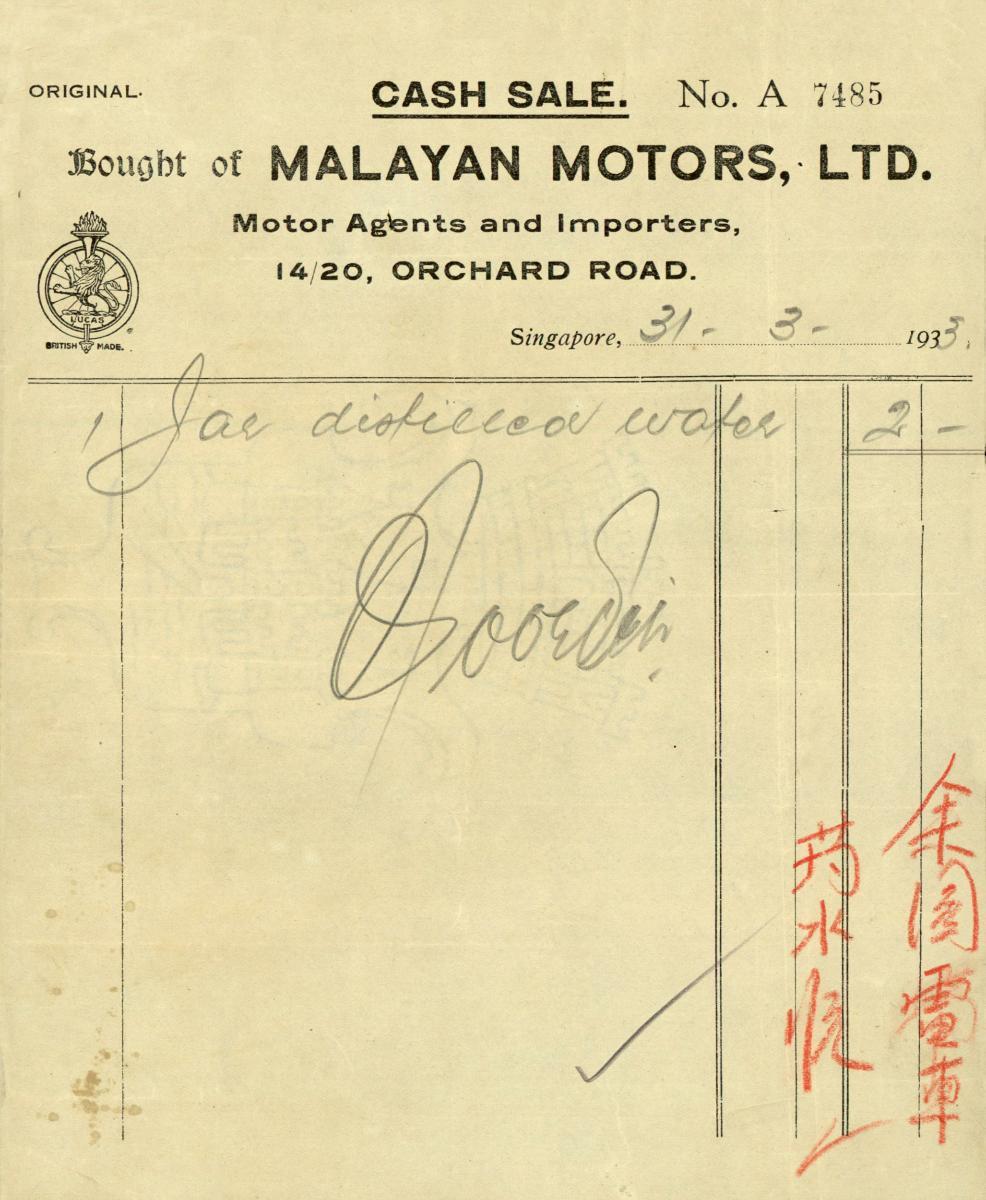 ORIGINAL.
CASH SALE. No. A 7485
Bought of MALAYAN MOTORS, LTD.
Motor Agents and Importers,
14/20, ORCHARD ROAD.
LUCAS
BRITISH MADE.
Singapore, 31 - 3 - 1933.
1 Jar distilled water 2 -
余園電車
药水